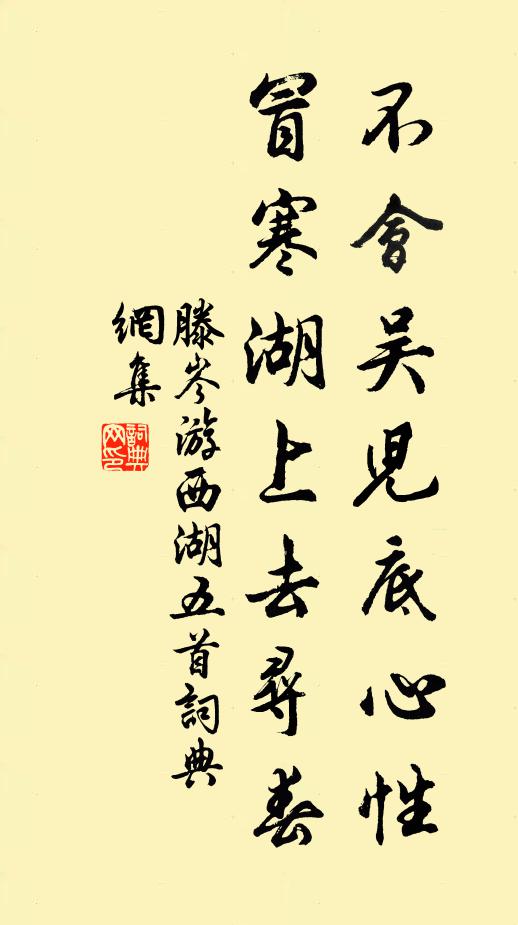 不會吴兒底心性
冒寒湖上去尋春
滕岑游西湖五首詞典
網集
詞典
网印